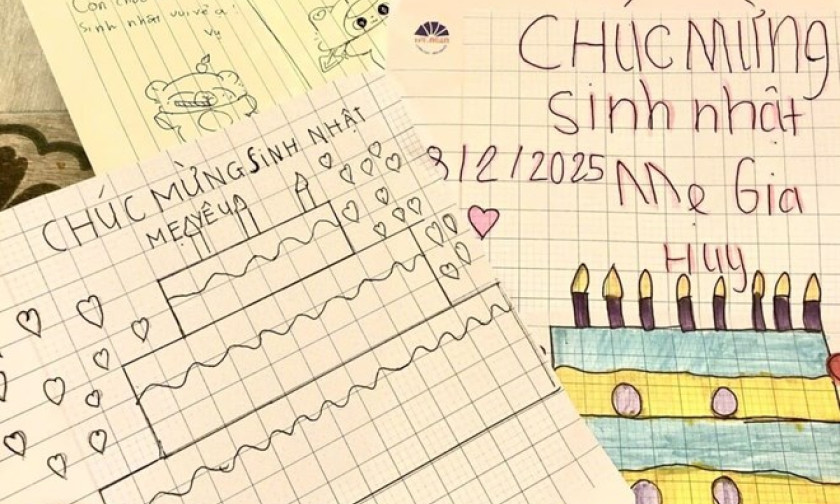 Con chúc
sinh nhật vui vẻ ạ!
Vy
CHÚC MỪNG SINH NHẬT
MẸ YÊU
CHÚC MỪNG
Sinh nhật
/2/2025 Mẹ Gia
Huy